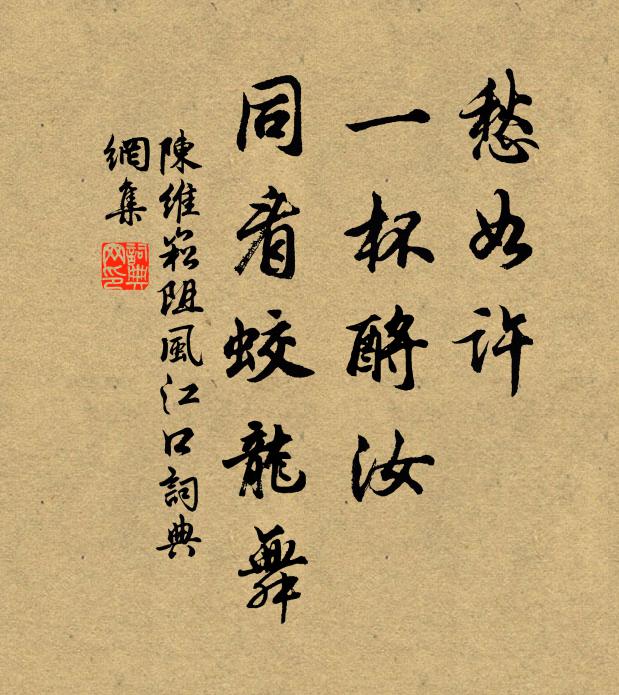 愁如許
一杯酹汝
同看蛟龍舞
陳維崧阻風江口詞典
網集
詞典
网印